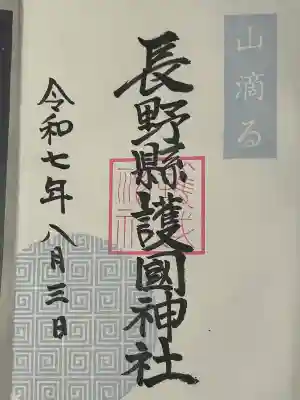 山滴る
長野縣護國神社
令和七年八月三日